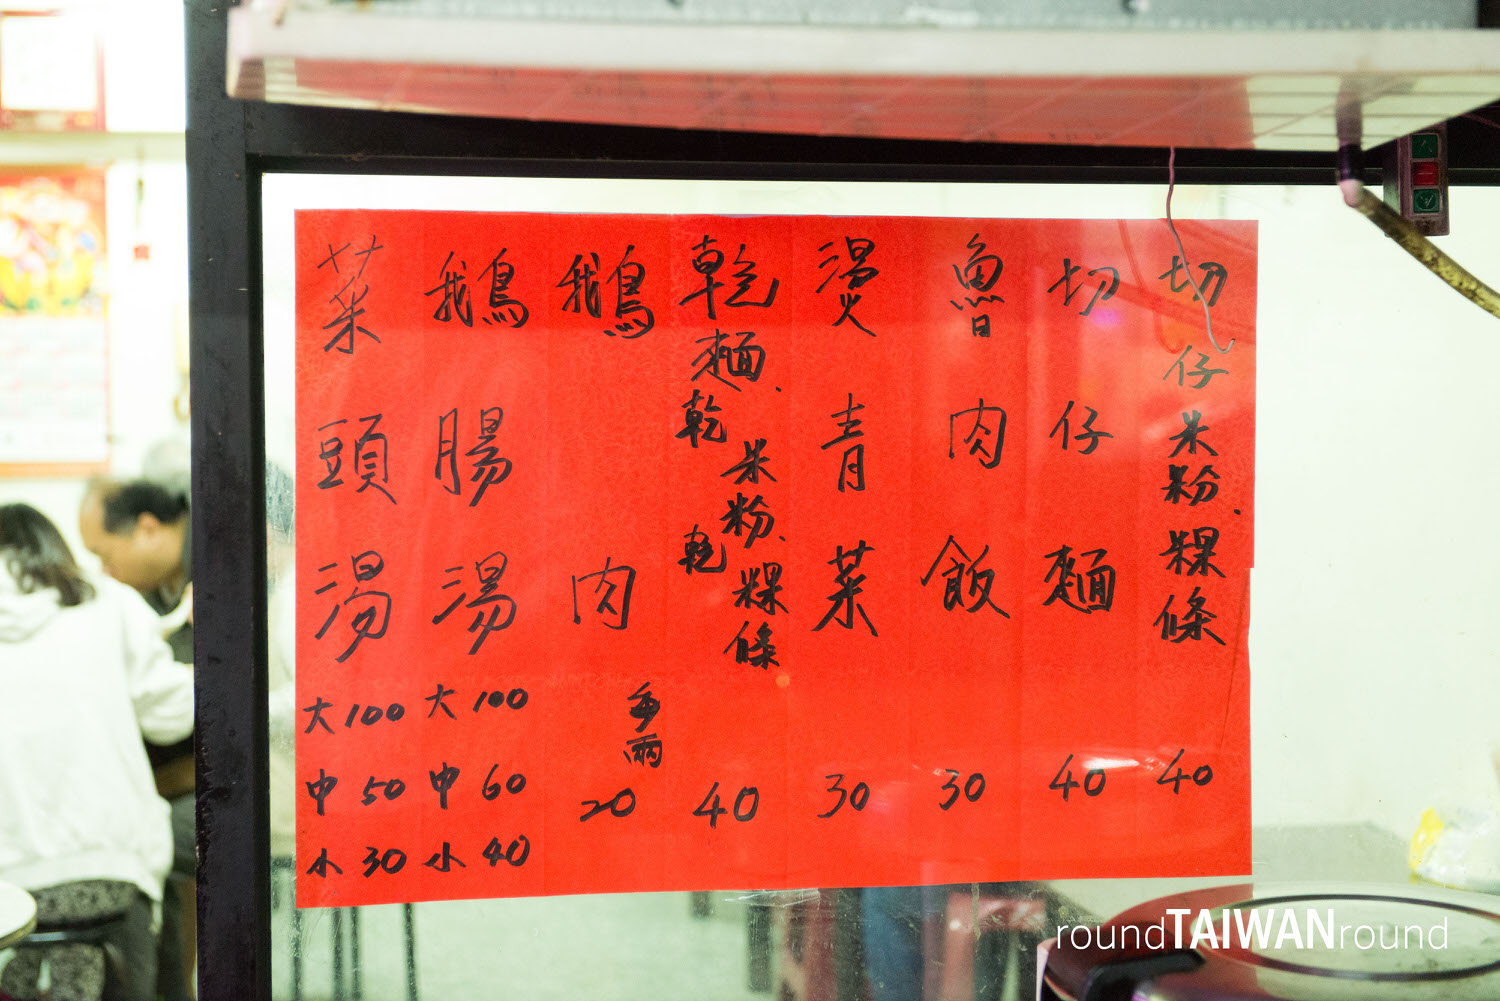 切仔米粉.粿條 40
切仔麵 40
魯肉飯 30
燙青菜 30
乾麵.乾米粉、乾粿條 40
鵝肉 每兩 20
鵝腸湯 大100 中60 小40
菜頭湯 大100 中50 小30
roundTAIWANround